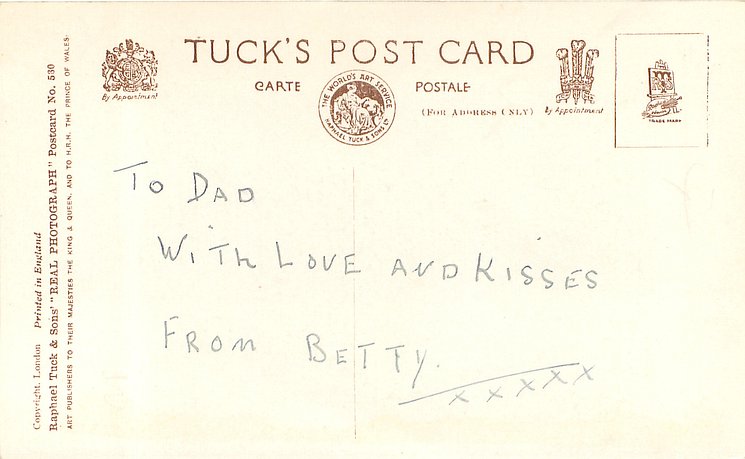 TUCK'S POST CARD
CARTE POSTALE
(FOR ADDRESS ONLY)
By Appointment
By Appointment
THE WORLD'S ART SERVICE
RAPHAEL TUCK & SONS LTD
TRADE MARK
Copyright. London Printed in England
Raphael Tuck & Sons' "REAL PHOTOGRAPH" Postcard No. 530
ART PUBLISHERS TO THEIR MAJESTIES THE KING & QUEEN, AND TO H.R.H. THE PRINCE OF WALES.
TO DAD
WITH LOVE AND KISSES
FROM BETTY.
X X X X X